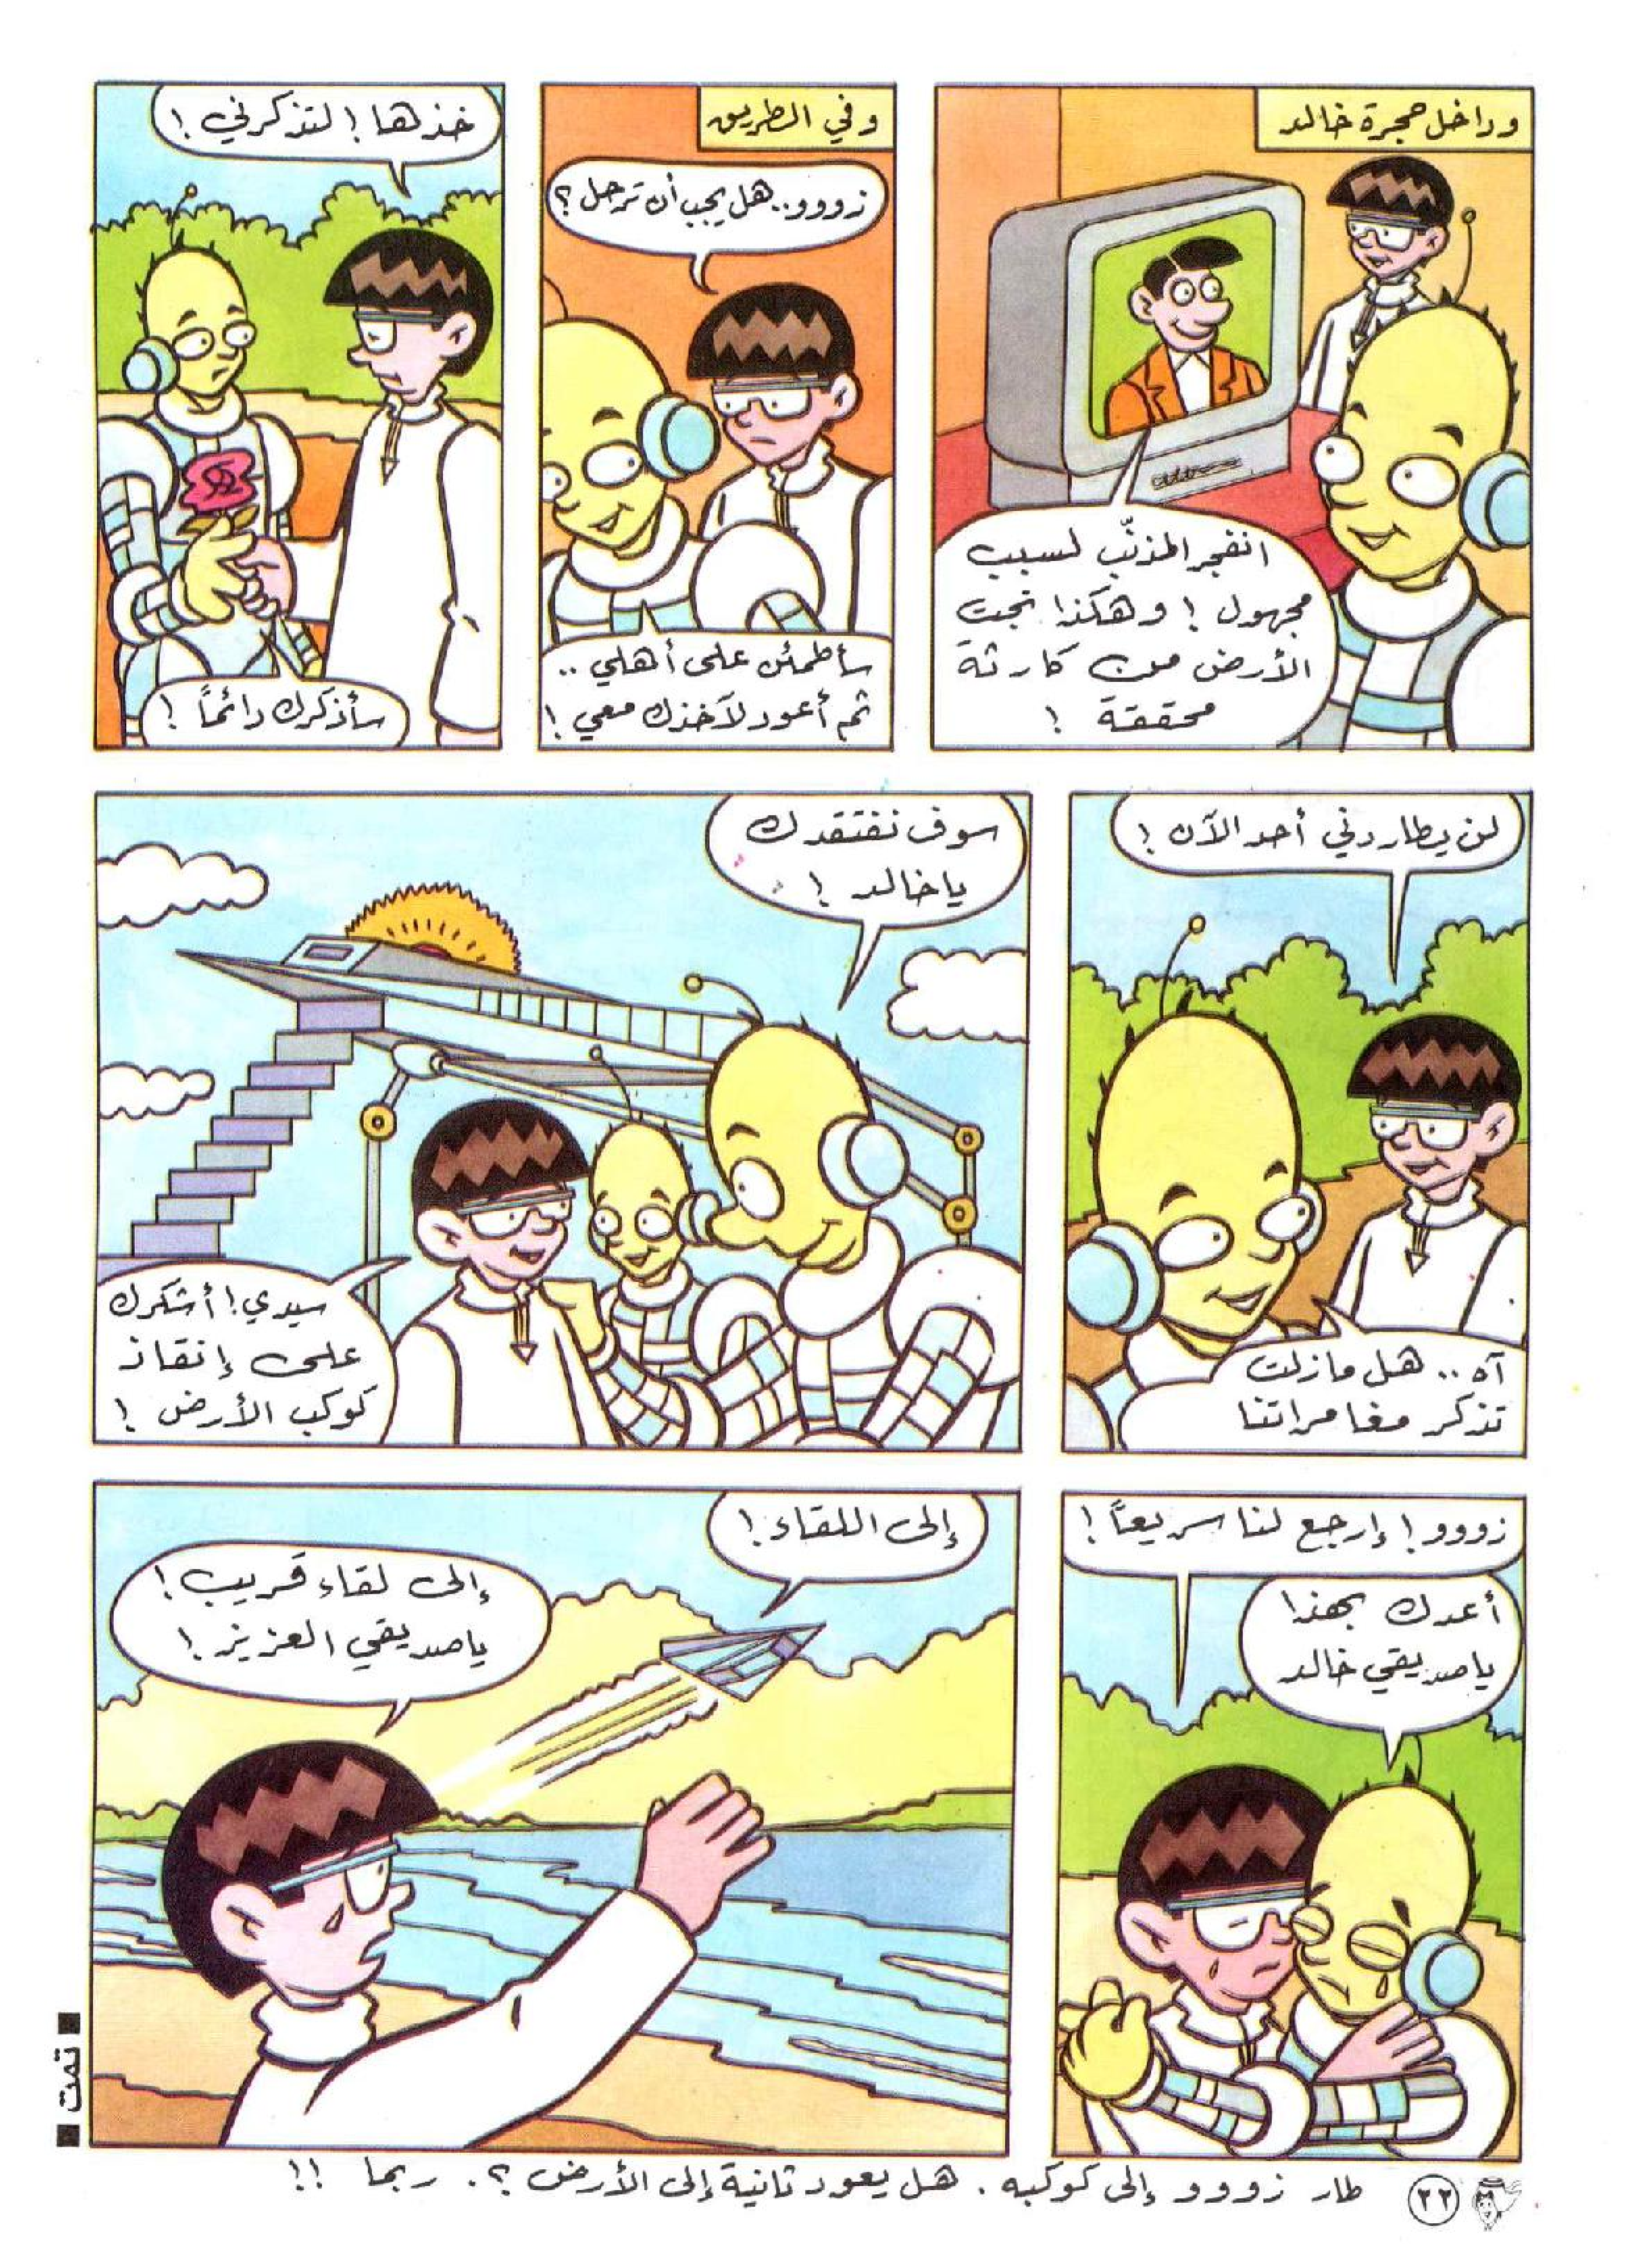 وداخل حجرة خالد
انفجر المذنّب لسبب
مجهول ! وهكذا نجت
الأرض من كارثة
محققة !
وفي الطريق
زووو.. هل يجب أن ترحل ؟
سأطمئن على أهلي ..
ثم أعود لآخذك معي !
خذها ! لتذكرني !
سأذكرك دائماً !
لن يطاردني أحد الآن !
آه .. هل مازلت
تذكر مغامراتنا
سوف نفتقدك
يا خالد !
سيدي ! أشكرك
على إنقاذ
كوكب الأرض !
زووو ! إرجع لنا سريعاً !
أعدك بهذا
يا صديقي خالد
إلى اللقاء !
إلى لقاء قريب !
يا صديقي العزيز !
■ تمت ■
طار زووو إلى كوكبه . هل يعود ثانية إلى الأرض ؟. ربما !!
٢٢